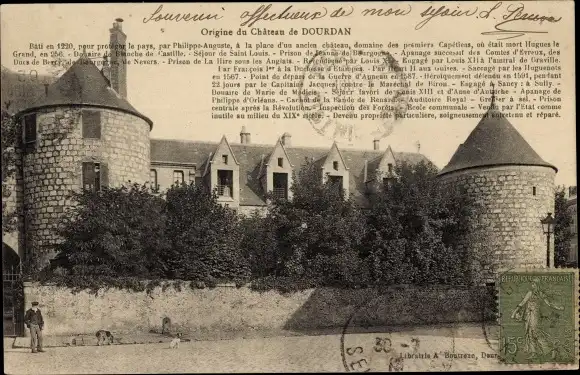 Souvenir affectueux de mon séjour
Origine du Château de DOURDAN
Bâti en 1220, pour protéger le pays, par Philippe-Auguste, à la place d'un ancien château, domaine des premiers Capétiens, où était mort Hugues le
Grand, en 956. - Douaire de Blanche de Castille. - Séjour de Saint Louis. - Prison de Jeanne de Bourgogne. - Apanage successif des Comtes d'Evreux, des
Ducs de Berry, de Bourgogne, de Nevers. - Prison de La Hire sous les Anglais. - Reconquis par Louis XI. - Engagé par Louis XII à l'amiral de Graville.
Par François Ier à la Duchesse d'Etampes. - Par Henri II aux Guises. - Saccagé par les Huguenots
en 1567. - Point de départ de la Guerre d'Auneau en 1587. - Héroïquement défendu en 1591, pendant
22 jours par le Capitaine Jacques contre le Maréchal de Biron. - Engagé à Sancy; à Sully.
Douaire de Marie de Médicis. - Séjour favori de Louis XIII et d'Anne d'Autriche. - Apanage de
Philippe d'Orléans. - Cachot de la Bande de Renard. - Auditoire Royal. - Grenier à sel. - Prison
centrale après la Révolution. - Inspection des Forêts. - Ecole communale. - Vendu par l'Etat comme
inutile au milieu du XIXe siècle. - Devenu propriété particulière, soigneusement entretenu et réparé.
Librairie A. Boutroue, Dour
15c